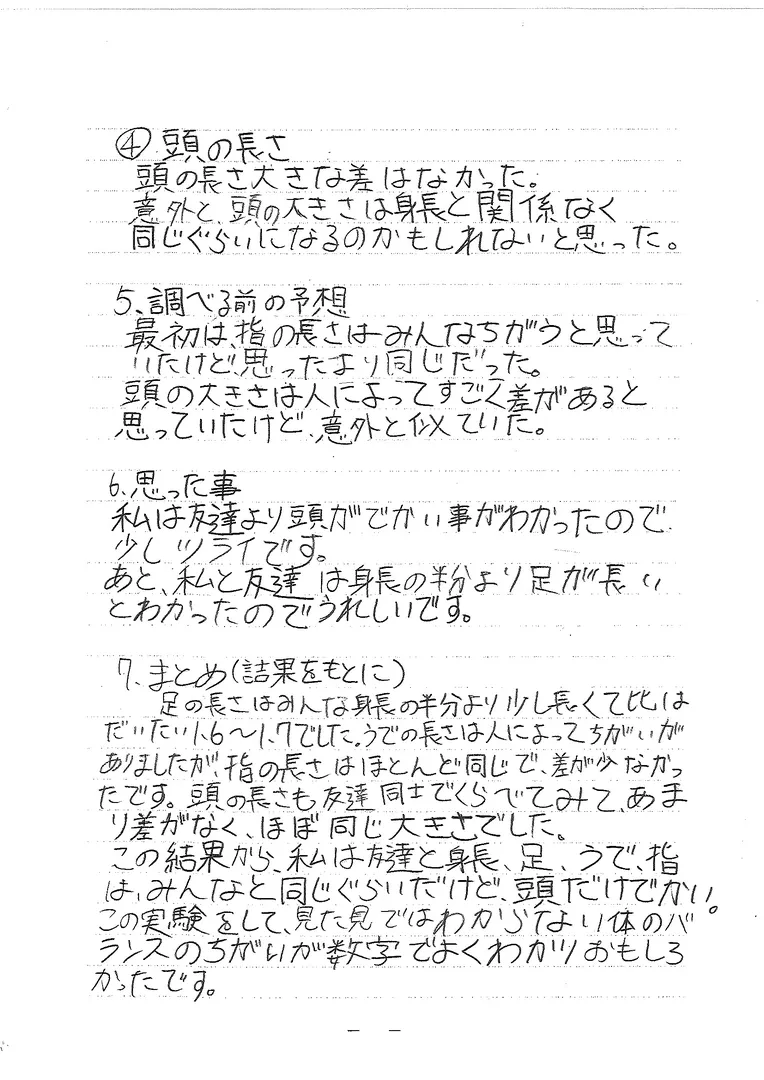 ④頭の長さ
頭の長さ大きな差はなかった。
意外と、頭の大きさは身長と関係なく
同じぐらいになるのかもしれないと思った。
5、調べる前の予想
最初は、指の長さはみんなちがうと思って
いたけど、思ったより同じだった。
頭の大きさは人によってすごく差があると
思っていたけど、意外と似ていた。
6.思った事
私は友達より頭がでかい事がわかったので
少しツライです。
あと、私と友達は身長の半分より足が長い
とわかったのでうれしいです。
7.まとめ(詰果をもとに)
足の長さはみんな身長の半分より少し長くて比は
だいたい1.6〜1.7でした。うでの長さは人によってちがいが
ありましたが、指の長さはほとんど同じで、差が少なかっ
たです。頭の長さも友達同士でくらべてみて、あま
り差がなく、ほぼ同じ大きさでした。
この結果から、私は友達と身長、足、うで、指
は、みんなと同じぐらいだけど、頭だけでかい。
この実験をして、見た見ではわからない体のバ
ランスのちがいが数字でよくわかりおもしろ
かったです。